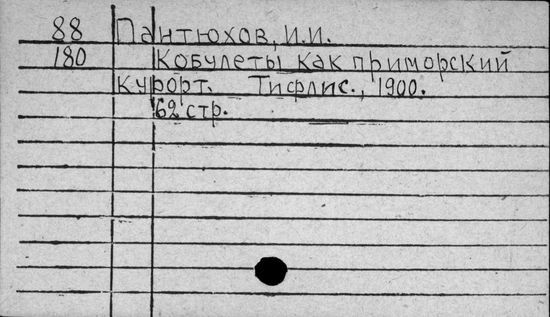 88 Пантюхов, И.И.
180 Кобулеты как приморский
курорт. Тифлис., 1900.
62 стр.